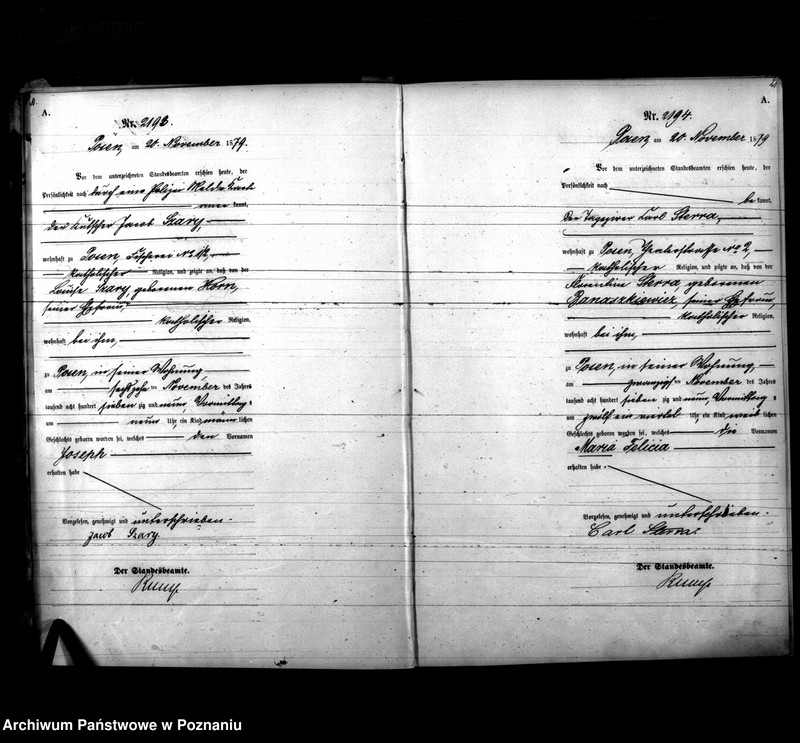 A.
Nr. 2193.
Posen, am 20. November 1879.
Vor dem unterzeichneten Standesbeamten erschien heute, der
Persönlichkeit nach durch eine Polizei Melde Karte
kannt,
der Kutscher Jacob Szary,
wohnhaft zu Posen, Fischerei No
katholischer Religion, und zeigte an, daß von der
Louise Szary, geborenen Horn,
seiner Ehefrau,
katholischer Religion,
wohnhaft bei ihm,
zu Posen, in seiner Wohnung
am sechszehn ten November des Jahres
tausend acht hundert sieben zig und neun, Vormittags
um neun Uhr ein Kind männlichen
Geschlechts geboren worden sei, welches den Vornamen
Joseph
erhalten habe
Vorgelesen, genehmigt und unterschrieben.
Jacob Szary.
Der Standesbeamte.
A.
Nr. 2194.
Posen, am 20. November 1879
Vor dem unterzeichneten Standesbeamten erschien heute, der
Persönlichkeit nach
be kannt,
der Carl Sterra,
wohnhaft zu Posen, No 2,
katholischer Religion, und zeigte an, daß von der
Florentine Sterra geborenen
Banaszkiewicz, seiner Ehefrau,
katholischer Religion,
wohnhaft bei ihm,
zu Posen, in seiner Wohnung,
am zwanzigsten November des Jahres
tausend acht hundert sieben zig und neun, Vormittags
um zwölf ein viertel Uhr, ein Kind weiblichen
Geschlechts geboren worden sei, welches die Vornamen
Maria Felicia
erhalten habe
Vorgelesen, genehmigt und unterschrieben.
Carl Sterra.
Der Standesbeamte.
Archiwum Państwowe w Poznaniu